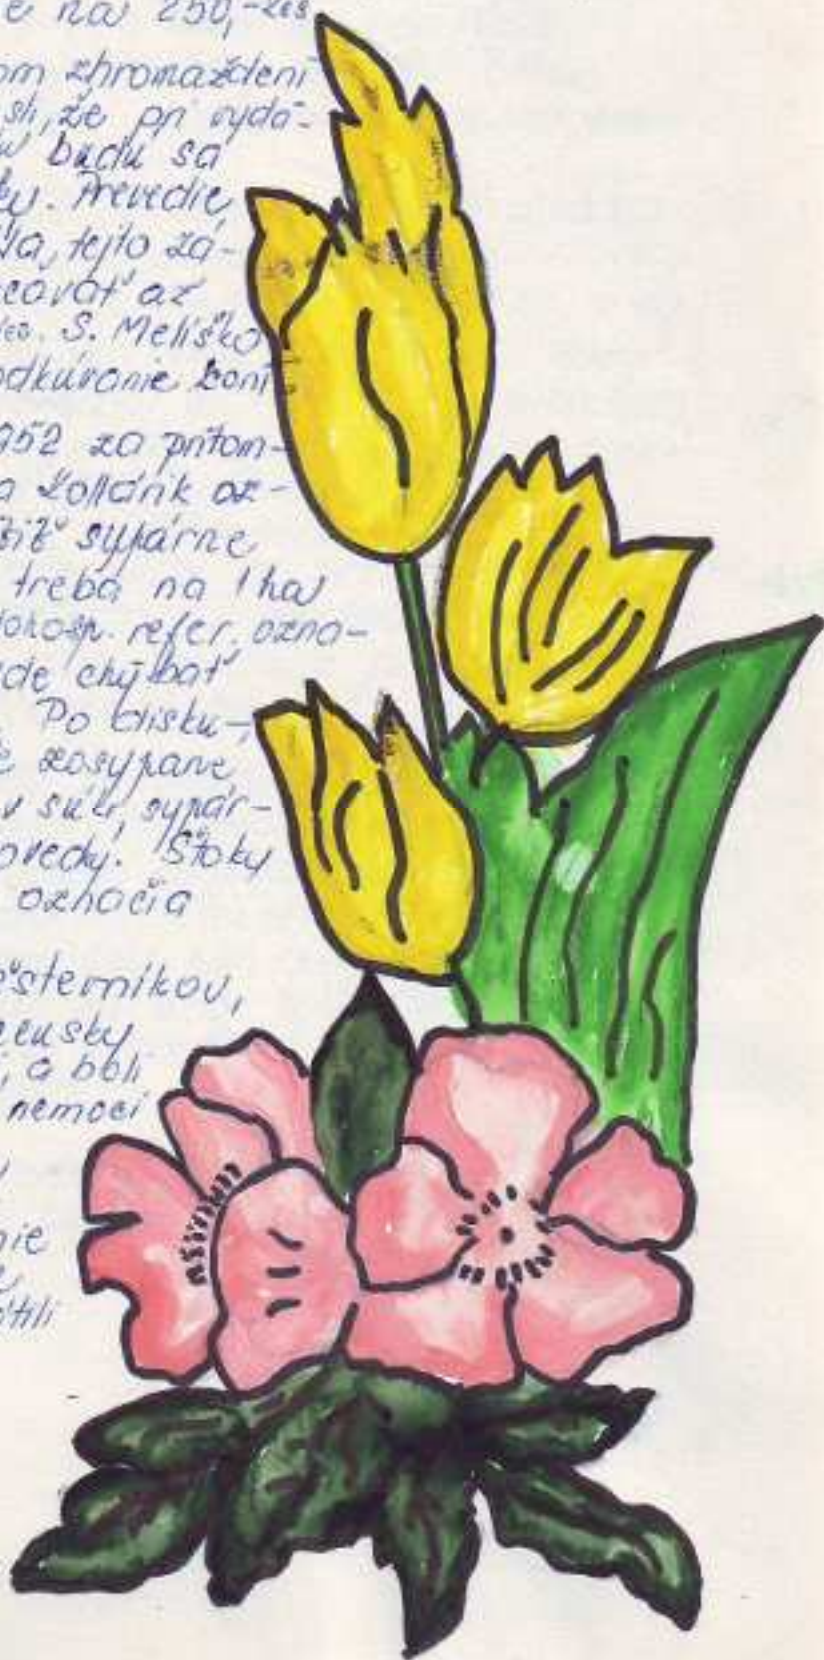 e na 250,- Kčs.
om zhromaždení
sli, že pri vydá-
budú sa
ky. Prevedie
la, tejto zá-
covať až
S. Meliško
odkúvanie koní
952 za prítom-
a Žollárik oz-
žiť sypárne
treba na 1 ha
dohosp. refer. ozna-
de chýbať
Po disku-
e zosypane
v súkr. sypár-
ovedy. Štoky
označia
šesterníkov,
zensky
, a boli
nemoci
nie
átili